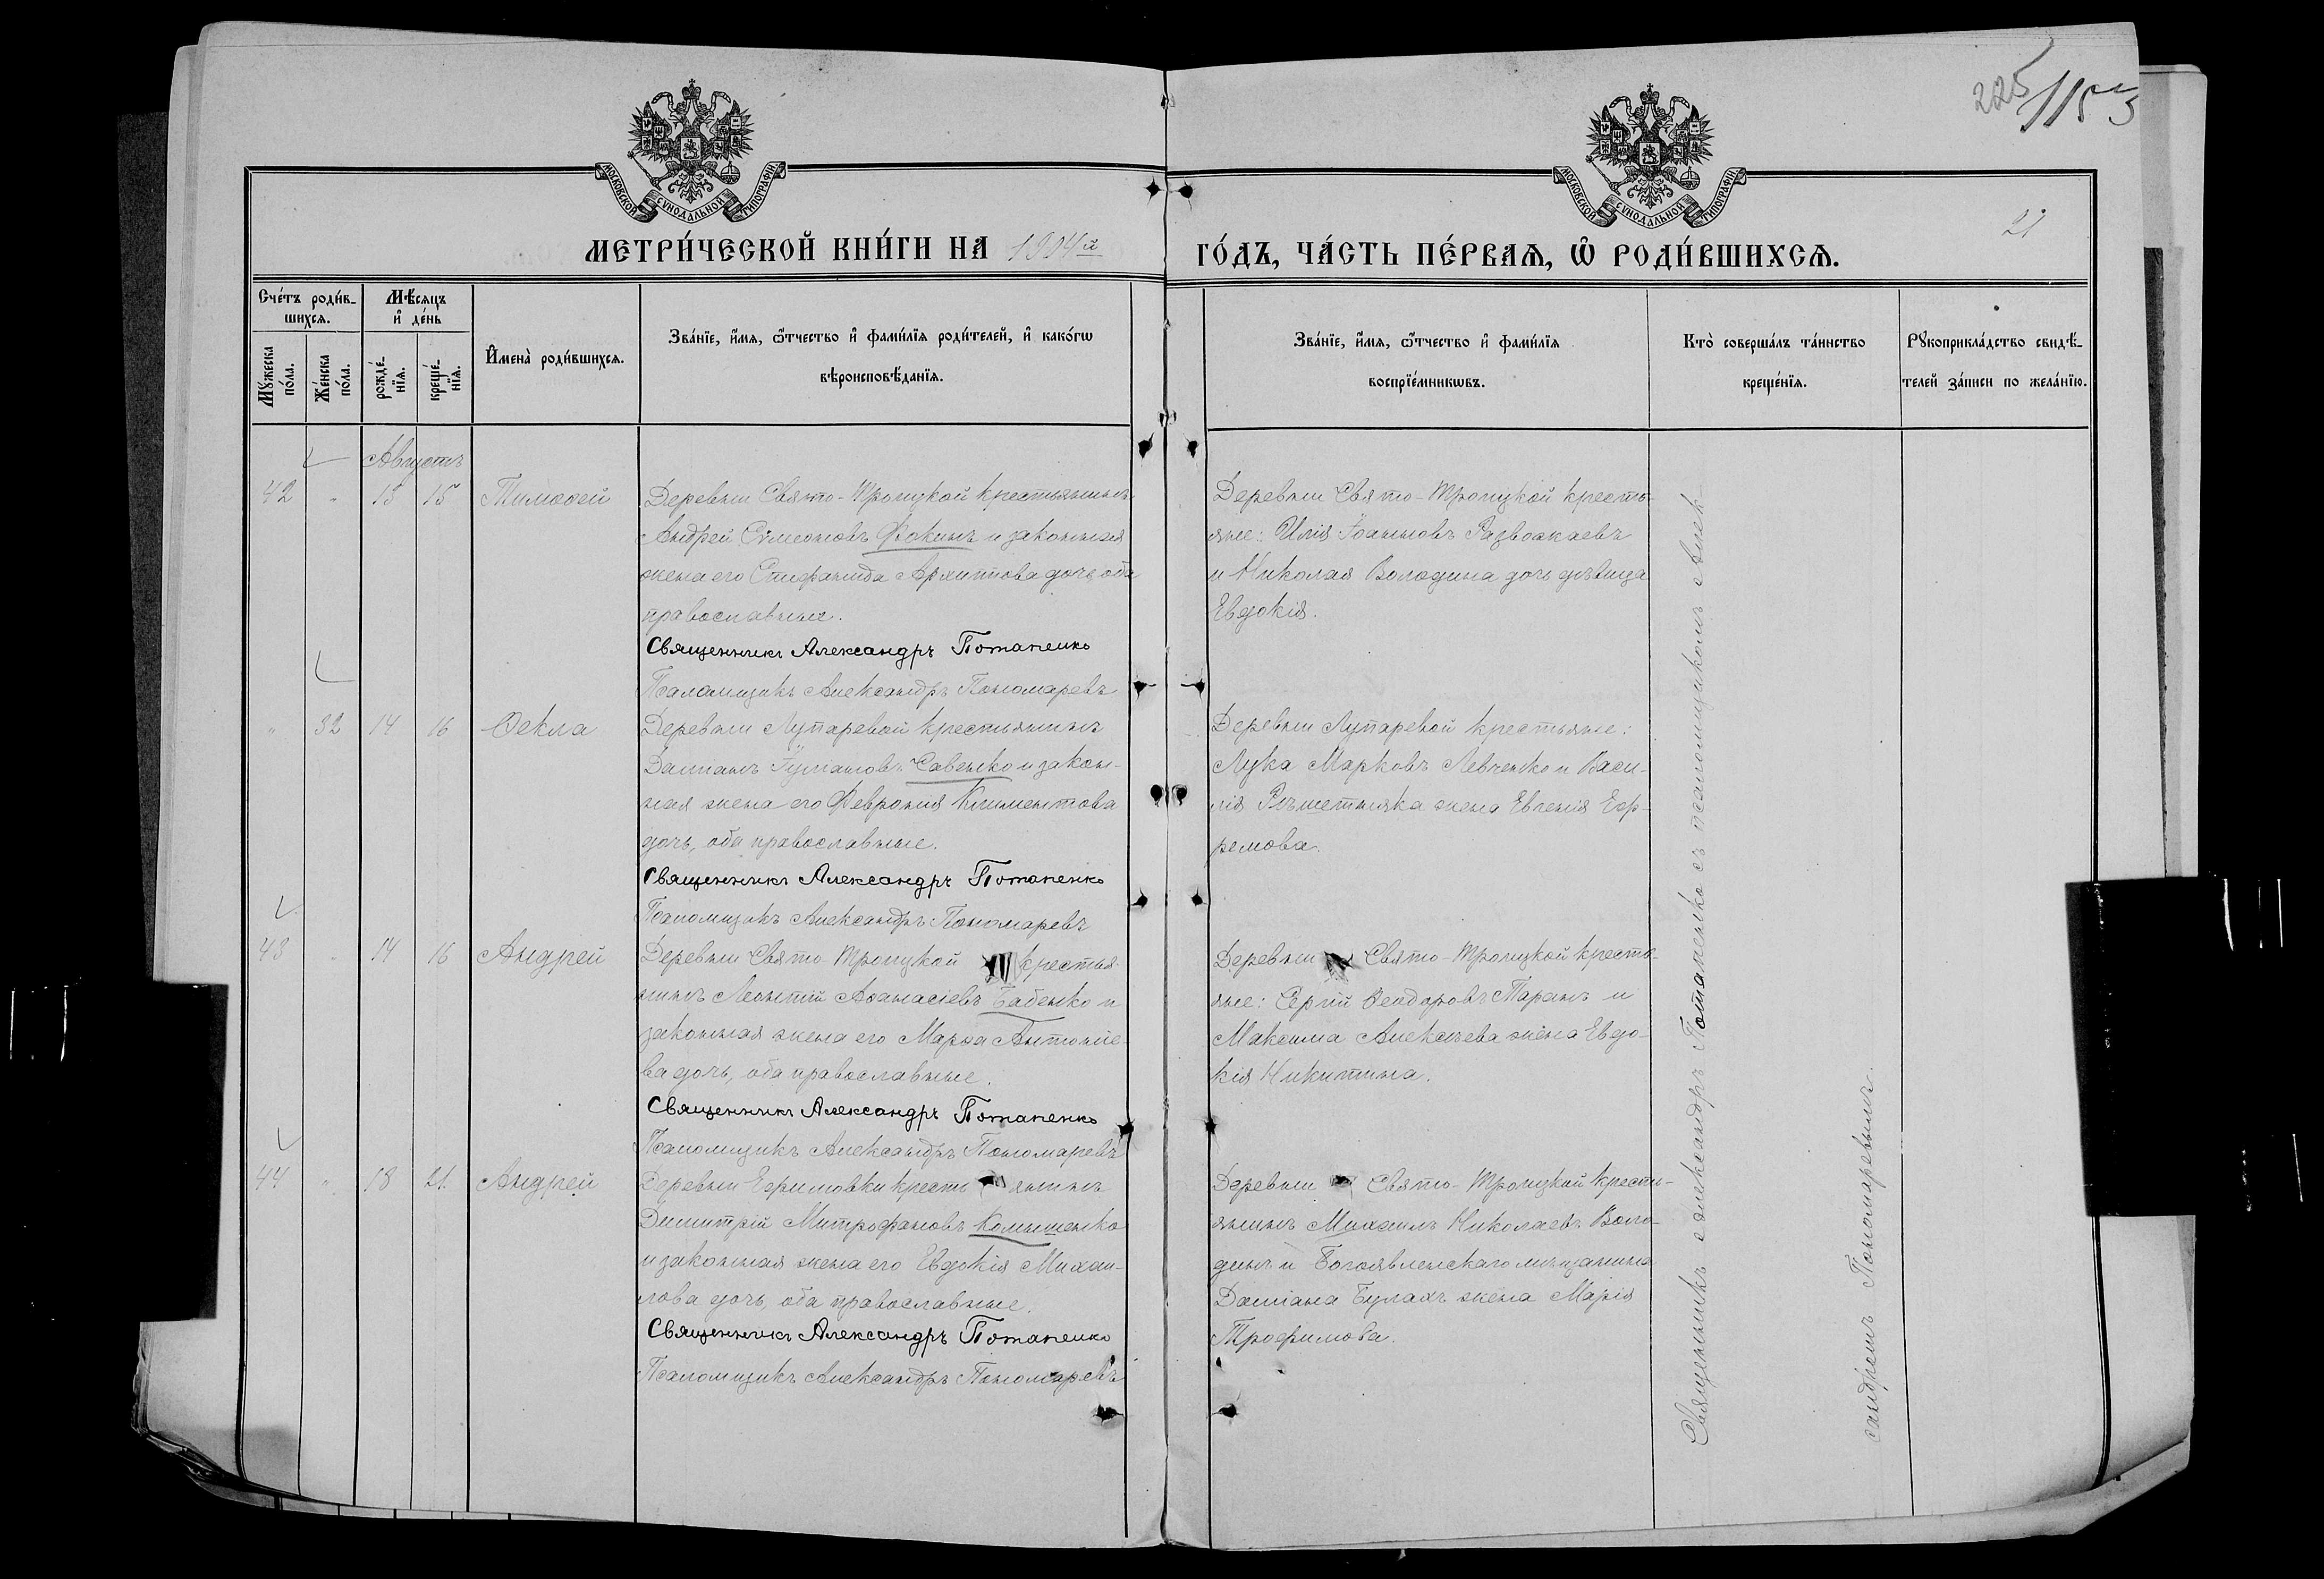 225
1153
МОСКОВСКОЙ СѴНОДАЛЬНОЙ ТИПОГРАФІИ
МОСКОВСКОЙ СѴНОДАЛЬНОЙ ТИПОГРАФІИ
МЕТРИ́ЧЕСКОЙ КНИ́ГИ НА 1904й
ГО́ДЪ, ЧА́СТЬ ПЕ́РВАѦ, Ѿ РОДИ́ВШИХСѦ.
21
Сче́тъ роди́в-
шихсѧ.
Мꙋ́жеска
по́ла.
Же́нска
по́ла.
Мѣ́сѧцъ
и҆ де́нь
рожде́-
нїѧ.
креще́-
нїѧ.
И҆мена̀ роди́вшихсѧ.
Зва́нїе, и҆́мѧ, ѻ҆́тчество и҆ фами́лїѧ роди́телей, и҆ како́гѡ
вѣроисповѣ́данїѧ.
Зва́нїе, и҆́мѧ, ѻ҆́тчество и҆ фами́лїѧ
воспрїе́мникѡвъ.
Кто̀ соверша́лъ та́инство
креще́нїѧ.
Рꙋкоприкла́дство свидѣ́-
телей за́писи по жела́нїю.
Августъ
42 " 13 15 Тимоѳей
Деревни Свято-Троицкой крестьянинъ
Андрей Сѵмеоновъ Фокинъ и законная
жена его Стефанида Архиппова дочь, оба
православные.
Священникъ Александръ Потапенко
Псаломщикъ Александръ Пономаревъ
Деревни Свято-Троицкой кресть-
яне: Илія Іоанновъ Развожаевъ
и Николая Володина дочь дѣвица
Евдокія.
" 32 14 16 Ѳекла
Деревни Лупаревой крестьянинъ
Даміанъ Савенко и закон-
ная жена его Феврония Климентова
дочь, оба православные.
Священникъ Александръ Потапенко
Псаломщикъ Александръ Пономаревъ
Деревни Лупаревой крестьяне:
Лука Марковъ Левченко и Васи-
лія Рѣшетняка жена Евгенія Еф-
ремова.
43 " 14 16 Андрей
Деревни Свято-Троицкой крестья-
нинъ Леонтій Аѳанасіевъ Бабенко и
законная жена его Марѳа Антоніе-
ва дочь, оба православные.
Священникъ Александръ Потапенко
Псаломщикъ Александръ Пономаревъ
Деревни Свято-Троицкой кресть-
яне: Сергій Ѳеодоровъ Таранъ и
Максима Алексѣева жена Евдо-
кія Никитина.
44 " 18 21 Андрей
Деревни Ефимовки крестьянинъ
Димитрій Митрофановъ Комышенко
и законная жена его Евдокія Михаи-
лова дочь, оба православные.
Священникъ Александръ Потапенко
Псаломщикъ Александръ Пономаревъ
Деревни Свято-Троицкой кресть-
янинъ Михаилъ Николаевъ Воло-
динъ и Богоявленскаго мѣщанина
Даміана Булахъ жена Марія
Трофимова.
Священникъ Александръ Потапенко съ псаломщикомъ Алек-
сандромъ Пономаревымъ.